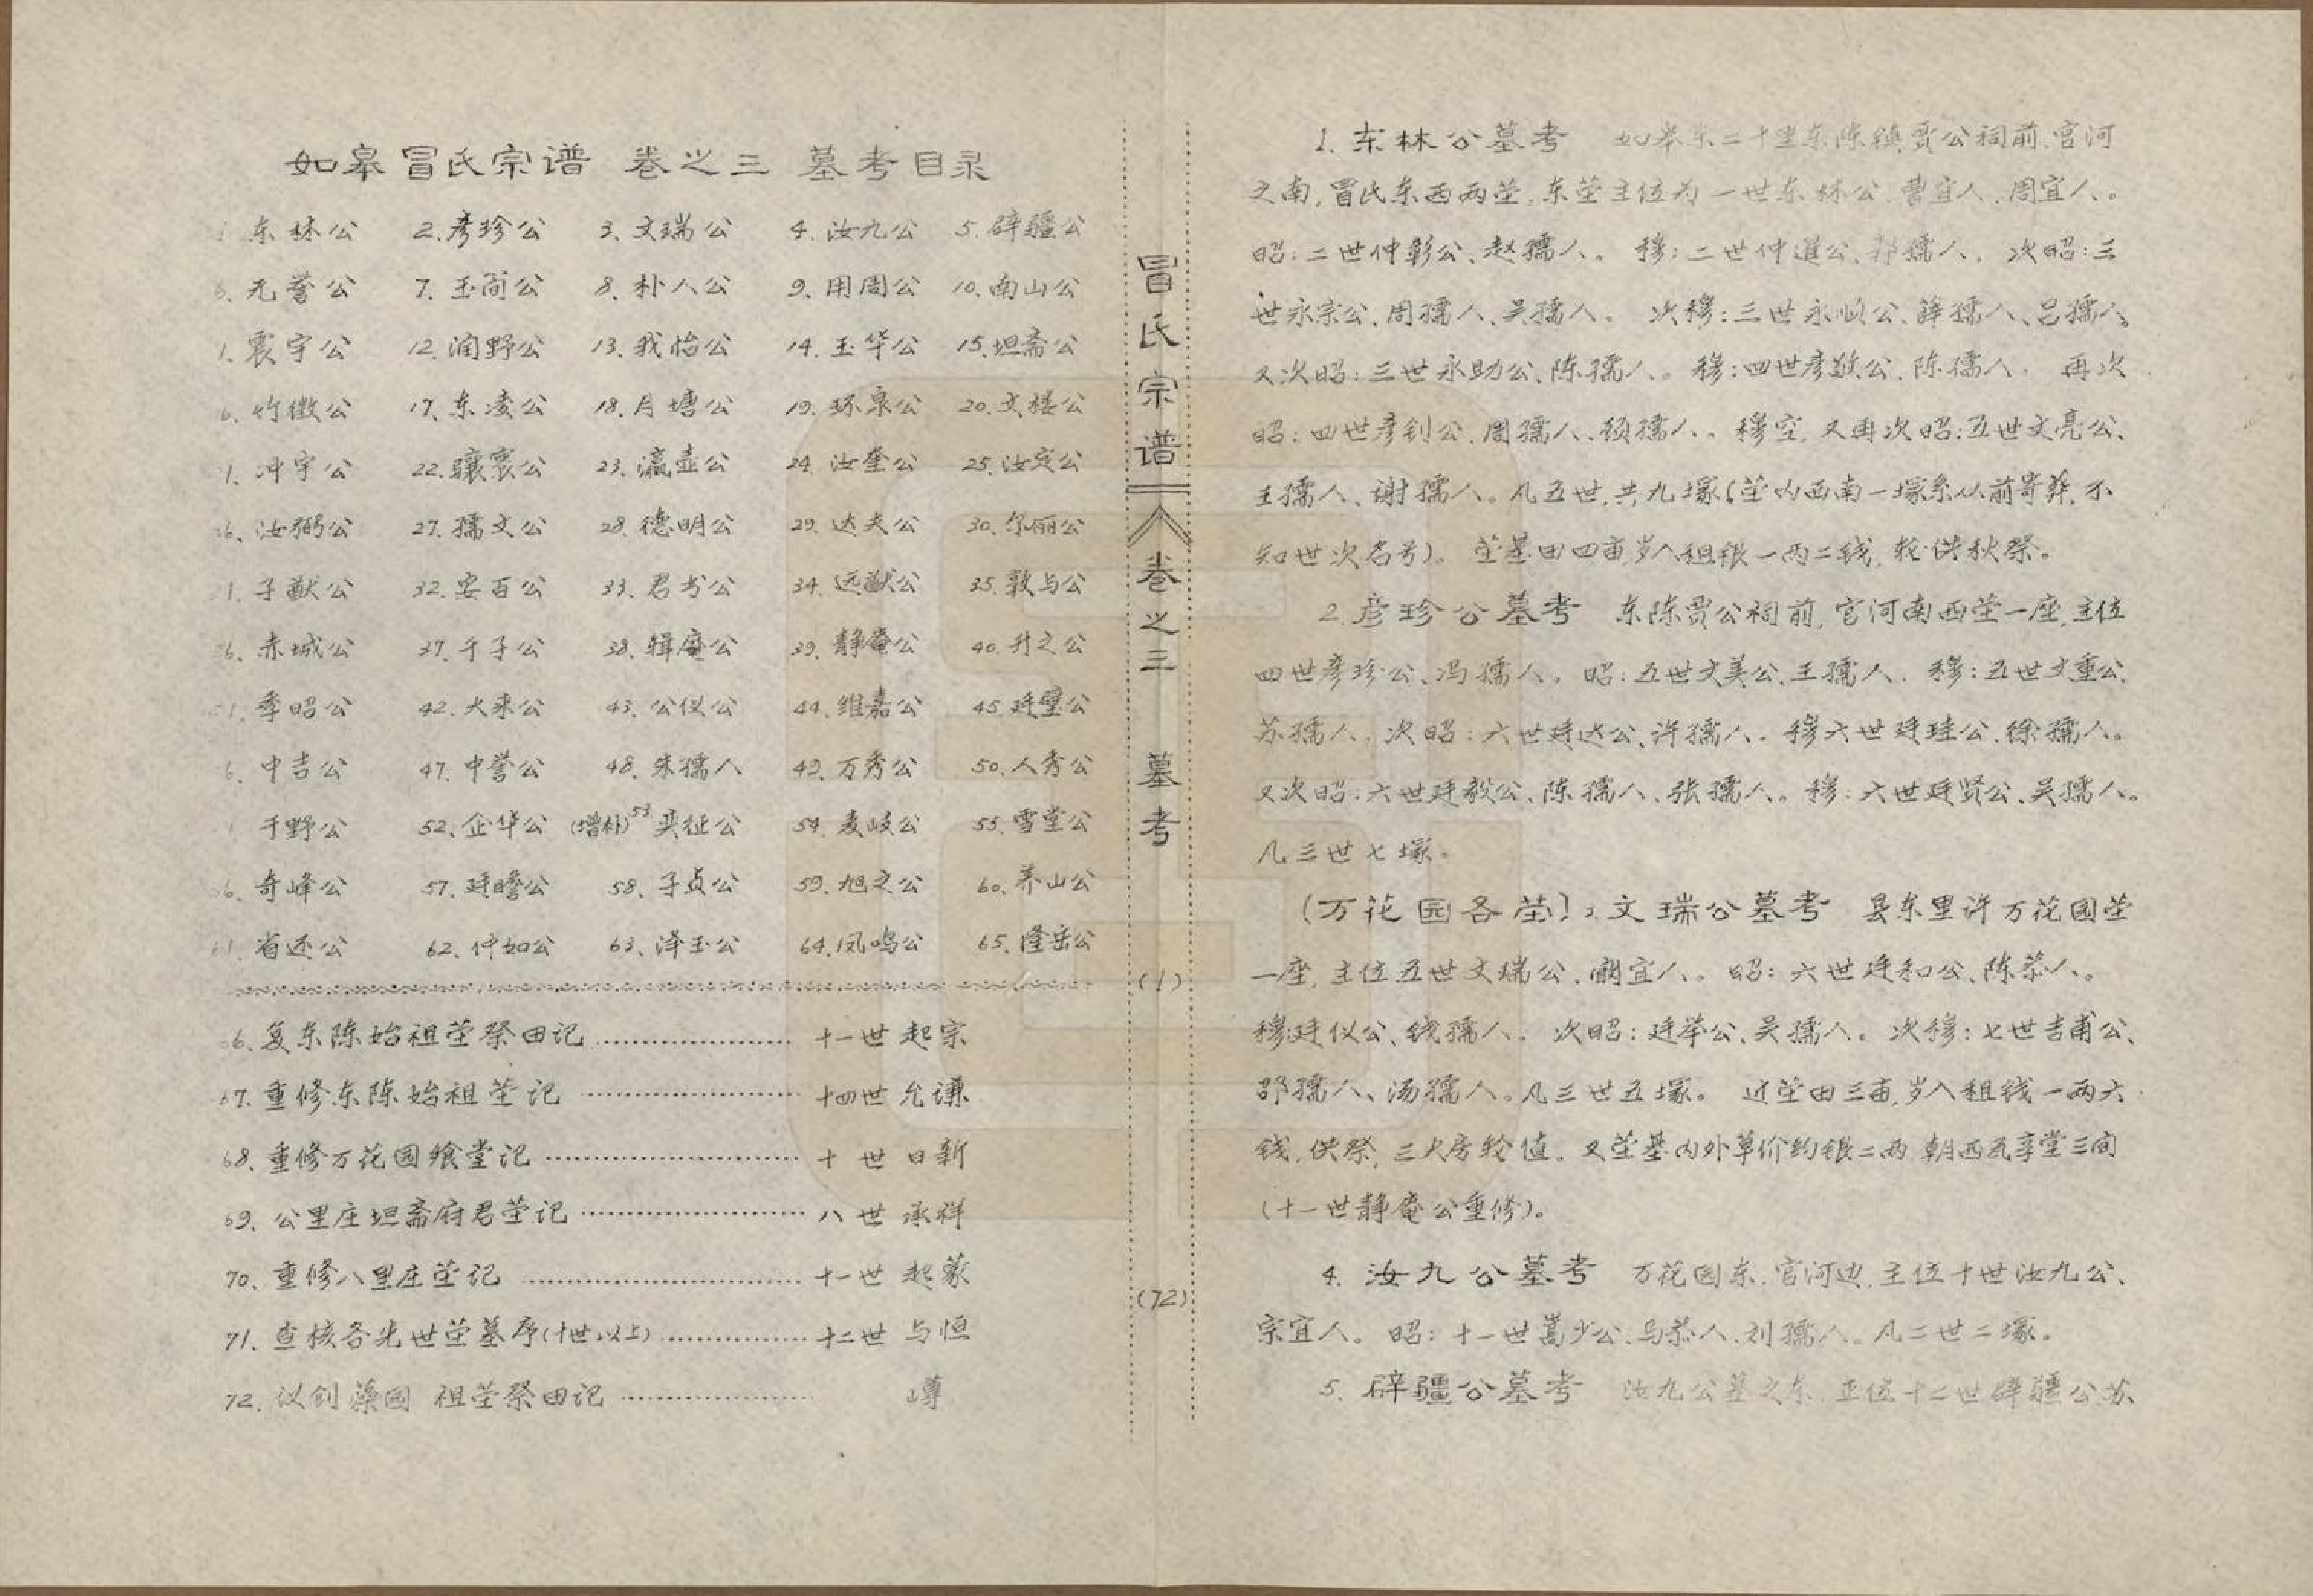 如皋冒氏宗谱 卷之三 墓考目录
东林公 2.彦珍公 3.文瑞公 4.汝九公 5.辟疆公
无誉公 7.玉简公 8.朴人公 9.用周公 10.南山公
寰宇公 12.润野公 13.我怡公 14.玉华公 15.坦斋公
竹徵公 17.东凌公 18.月塘公 19.环泉公 20.文楼公
冲宇公 22.骧寰公 23.瀛壶公 24.汝奎公 25.汝定公
汝弼公 27.孺文公 28.德明公 29.达夫公 30.尔丽公
子猷公 32.安百公 33.君书公 34.远猷公 35.敦与公
赤城公 37.千子公 38.辑庵公 39.静庵公 40.升之公
季昭公 42.大来公 43.公仪公 44.维嘉公 45.廷璧公
中吉公 47.中誉公 48.朱孺人 49.万秀公 50.人秀公
于野公 52.企华公 (增补)53.奕征公 54.麦岐公 55.雪堂公
奇峰公 57.廷瞻公 58.子贞公 59.旭之公 60.养山公
省还公 62.仲如公 63.泽玉公 64.凤鸣公 65.隆岳公
复东陈始祖茔祭田记 十一世 起宗
67.重修东陈始祖茔记 十四世 允谦
68.重修万花园飨堂记 十世 日新
69.公里庄坦斋府君茔记 八世 承祥
70.重修八里庄茔记 十一世 起蒙
71.查核各先世茔墓序(十世以上) 十二世 与恒
72.仪创藻园 祖茔祭田记 嶟
冒氏宗谱 卷之三 墓考 (1) (72)
1.东林公墓考 如皋东二十里东陈镇贾公祠前,官河
之南,冒氏东西两茔,东茔主位为一世东林公、曹宜人、周宜人。
昭:二世仲彰公、赵孺人。穆:二世仲进公、孺人。次昭:三
世永宗公、周孺人、吴孺人。次穆:三世永顺公、薛孺人、吕孺人、
又次昭:三世永助公、陈孺人。穆:四世彦敬公、陈孺人。再次
昭:四世彦钊公、周孺人、顾孺人。穆空,又再次昭:五世文亮公、
王孺人、谢孺人。凡五世,共九塚(茔内西南一塚系从前寄葬,不
知世次名号)。茔基田四亩,岁入租银一两二钱,轮供秋祭。
2.彦珍公墓考 东陈贾公祠前,官河南西茔一座,主位
四世彦珍公、冯孺人。昭:五世文美公、王孺人。穆:五世文重公、
苏孺人。次昭:六世廷达公、许孺人。穆六世廷珪公、徐孺人。
又次昭:六世廷毅公、陈孺人、张孺人。穆:六世廷贤公、吴孺人。
凡三世七塚。
(万花园各茔)3.文瑞公墓考 县东里许万花园茔
一座,主位五世文瑞公、阚宜人。昭:六世廷和公、陈恭人。
穆廷仪公、钱孺人。次昭:廷举公、吴孺人。次穆:七世吉甫公、
邵孺人、汤孺人。凡三世五塚。近茔田三亩,岁入租钱一两六
钱,供祭,三大房轮值。又茔基内外草价约银二两 朝西瓦享堂三间
(十一世静庵公重修)。
4.汝九公墓考 万花园东,官河边,主位十世汝九公、
宗宜人。昭:十一世嵩少公、马恭人、刘孺人。凡二世二塚。
5.辟疆公墓考 汝九公墓之东,正位十二世辟疆公苏